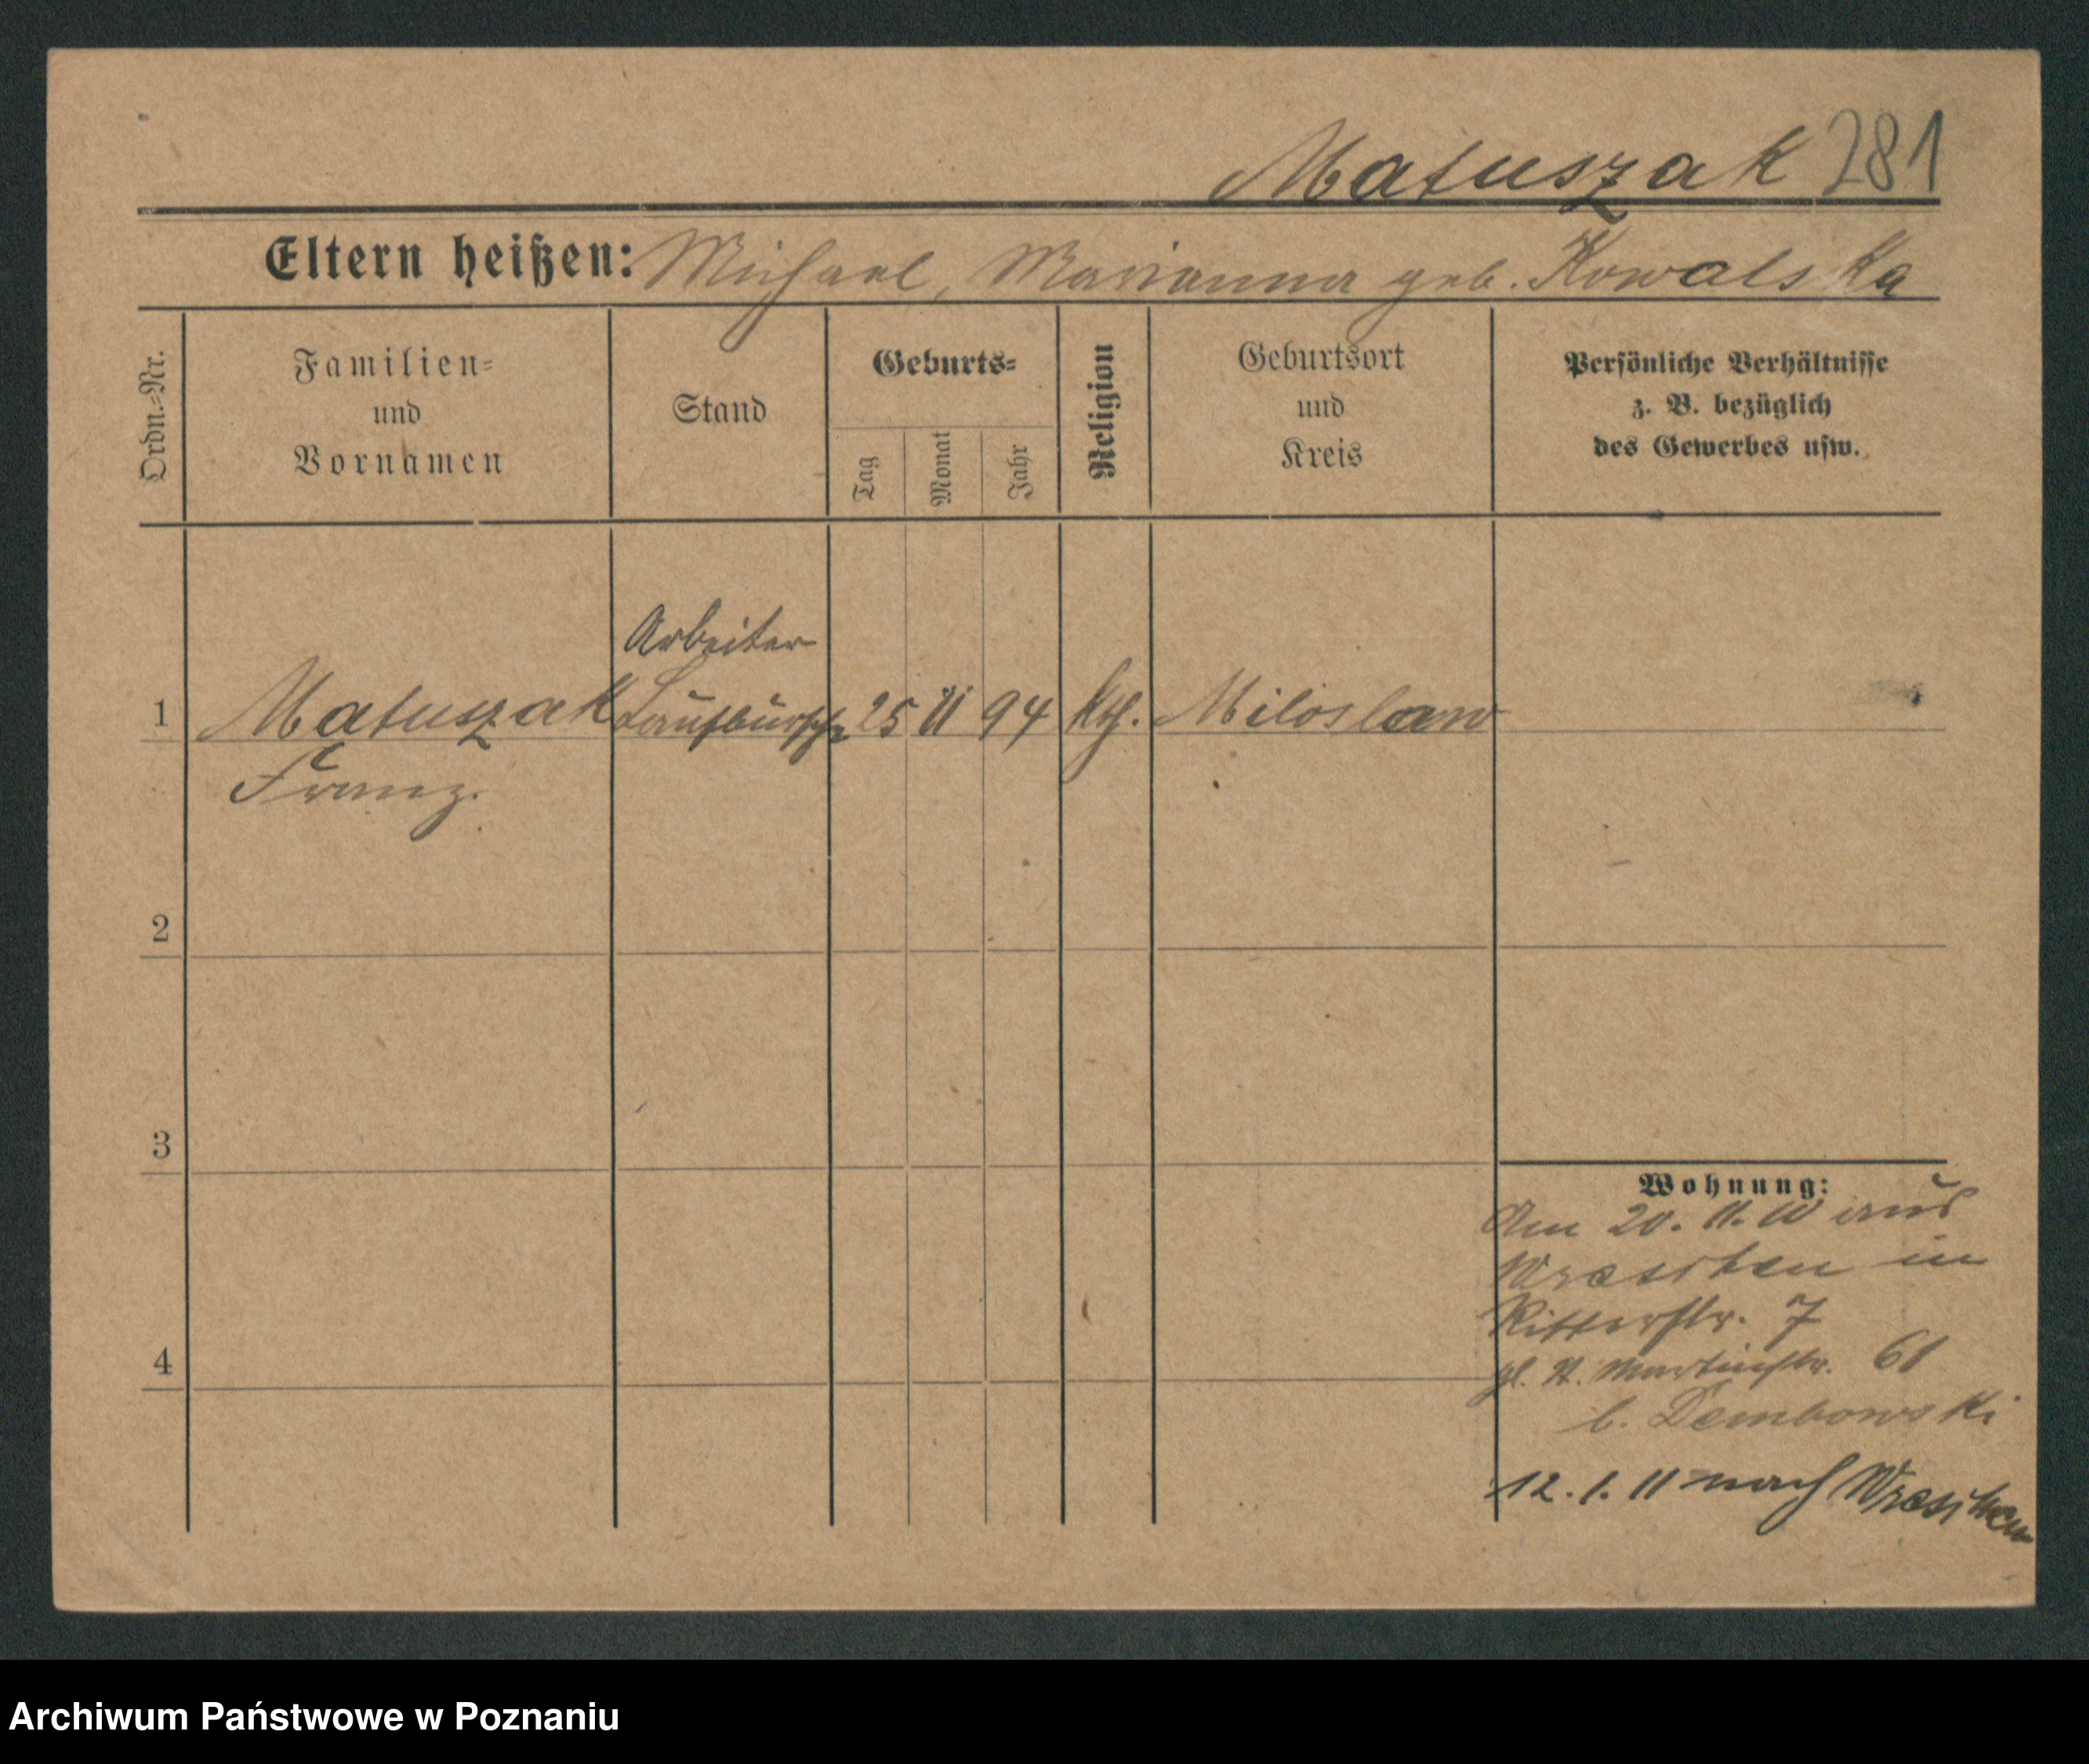 Matuszak 281
Eltern heißen: Michael, Marianna geb. Kowalska
Ordn.-Nr.
Familien-
und
Vornamen
Stand
Geburts-
Tag
Monat
Jahr
Religion
Geburtsort
und
Kreis
Persönliche Verhältnisse
z. B. bezüglich
des Gewerbes usw.
Arbeiter
1 Matuszak Laufbursche 25 11 94 kth. Miloslaw
Franz.
2
3
4
Wohnung:
Am 20. 11. 10 aus
Wreschen in
Ritterstr. 7
gl. St. Martinstr. 61
b. Dembowski
12. 1. 11 nach Wreschen
Archiwum Państwowe w Poznaniu